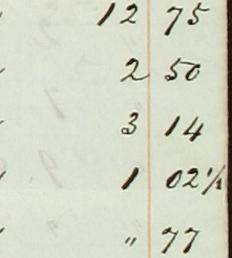 12 75
2 50
3 14
1 02½
" 77